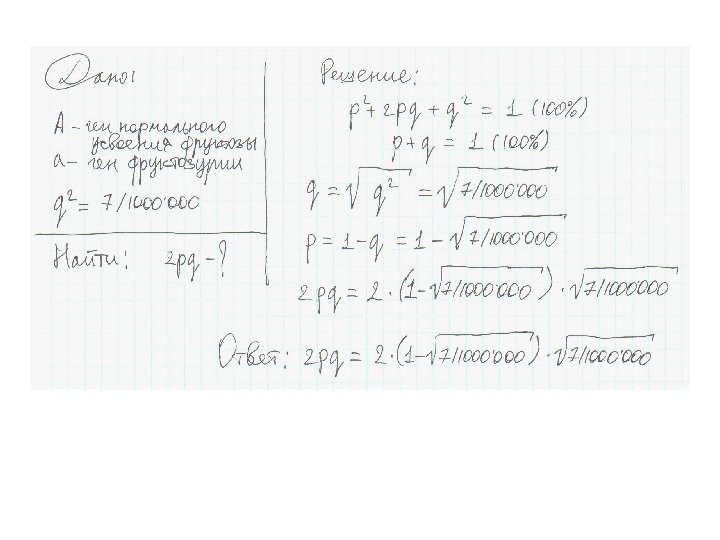 Дано:
А - ген нормального
усвоения фруктозы
а - ген фруктозурии
q² = 7/1000'000
Найти: 2pq - ?
Решение:
p² + 2pq + q² = 1 (100%)
p + q = 1 (100%)
q = √q² = √7/1000'000
p = 1 - q = 1 - √7/1000'000
2pq = 2 · (1 - √7/1000'000) · √7/1000000
Ответ: 2pq = 2 · (1 - √7/1000'000) · √7/1000'000